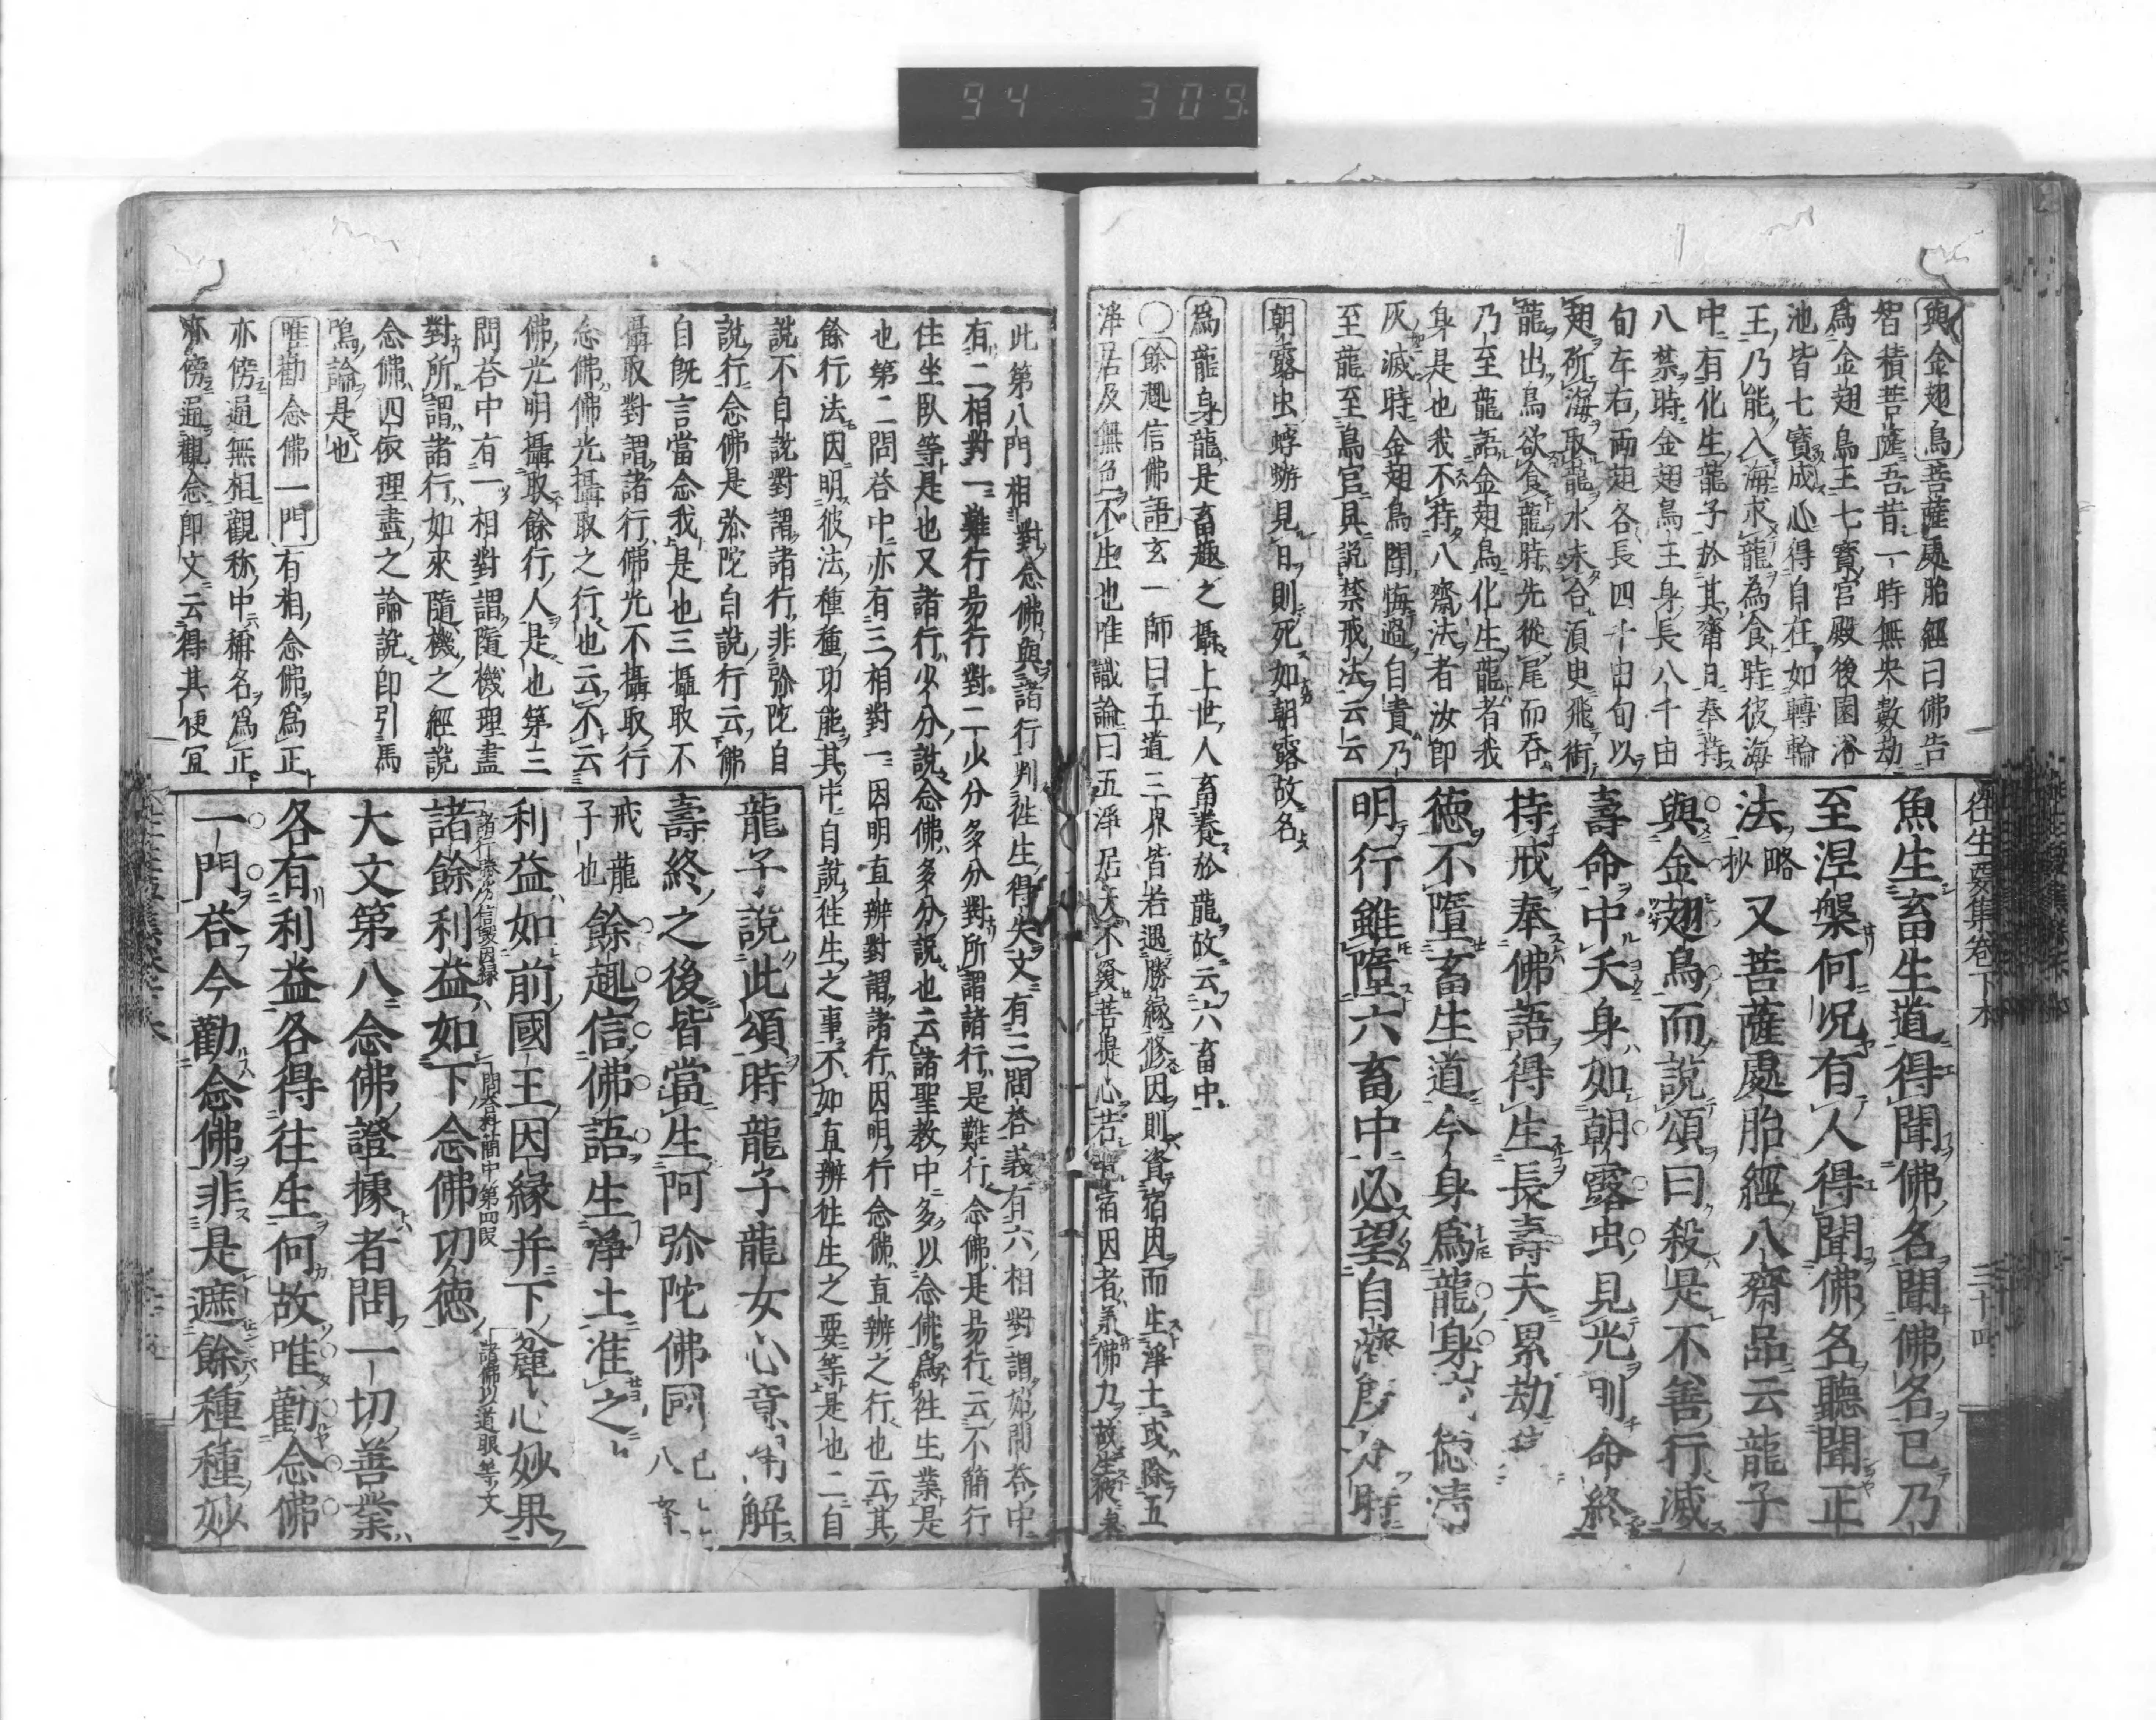 94 309
與金翅鳥菩薩處胎經曰佛告
智積菩薩吾昔一時無央數劫
爲金翅鳥王七寶宮殿後園浴
池皆七寶成心得自在如轉輪
王乃能入海求龍為食時彼海
中有化生龍子於其齋日奉持
八禁時金翅鳥王身長八千由
旬左右兩翅各長四千由旬以
翅斫海取龍水未合頂臾飛銜
龍出鳥欲食龍時先從尾而吞
乃至龍語金翅鳥化生龍者我
身是也我不持八齋法者汝即
灰滅時金翅鳥聞悔過自責乃
至龍至鳥宮具説禁戒法云云
朝露虫蜉蝣見日則死如朝露故名
爲龍身龍是畜趣之攝上世人畜養於龍故云六畜中
〇餘趣信佛語玄一師曰五道三界皆若遇勝緣修因則資宿因而生淨土或除五
淨居及無色不生也唯識論曰五淨居天不發菩提心若宿因者
往生要集卷下本 三十四
魚生畜生道得聞佛名聞佛名已乃
至涅槃何況有人得聞佛名聽聞正
法略抄又菩薩處胎經八齋品云龍子
與金翅鳥而說頌曰殺是不善行滅
壽命中夭身如朝露虫見光則命終
持戒奉佛語得生長壽天累劫
徳不墮畜生道今身爲龍身
明行雖墮六畜中必望自濟度
此第八門相對念佛與諸行判徃生得失文有三問答義有六相對謂初問答中
有二相對一難行易行對二少分多分對所謂諸行是難行念佛是易行云不簡行
住坐臥等是也又諸行少分說念佛多分說也云諸聖教中多以念佛爲徃生業是
也第二問答中亦有三相對一因明直辨對謂諸行因明行念佛直辨之行也云其
餘行法因明彼法種種功能其中自說徃生之事不如直辨徃生之要等是也二自
說不自說對謂諸行非弥陀自
說行念佛是弥陀自說行云佛
自旣言當念我是也三攝取不
攝取對謂諸行佛光不攝取行
念佛佛光攝取之行也云不云
佛光明攝取餘行人是也第三
問答中有一相對謂隨機理盡
對所謂諸行如來隨機之經說
念佛四依理盡之論說即引馬
鳴論是也
唯勸念佛一門有相念佛爲正
亦傍通無相觀称中稱名爲正
亦傍通觀念即文云得其便宜
龍子說此頌時龍子龍女心意開解
壽終之後皆當生阿弥陀佛國
戒龍子也餘趣信佛語生淨土准之
利益如前國王因緣并下麁心妙果
諸行勝劣信毀因緣
諸餘利益如下念佛功徳
問答料簡中第四段
諸佛以道眼等文
大文第八念佛證據者問一切善業
各有利益各得往生何故唯勸念佛
一門答今勸念佛非是遮餘種種妙